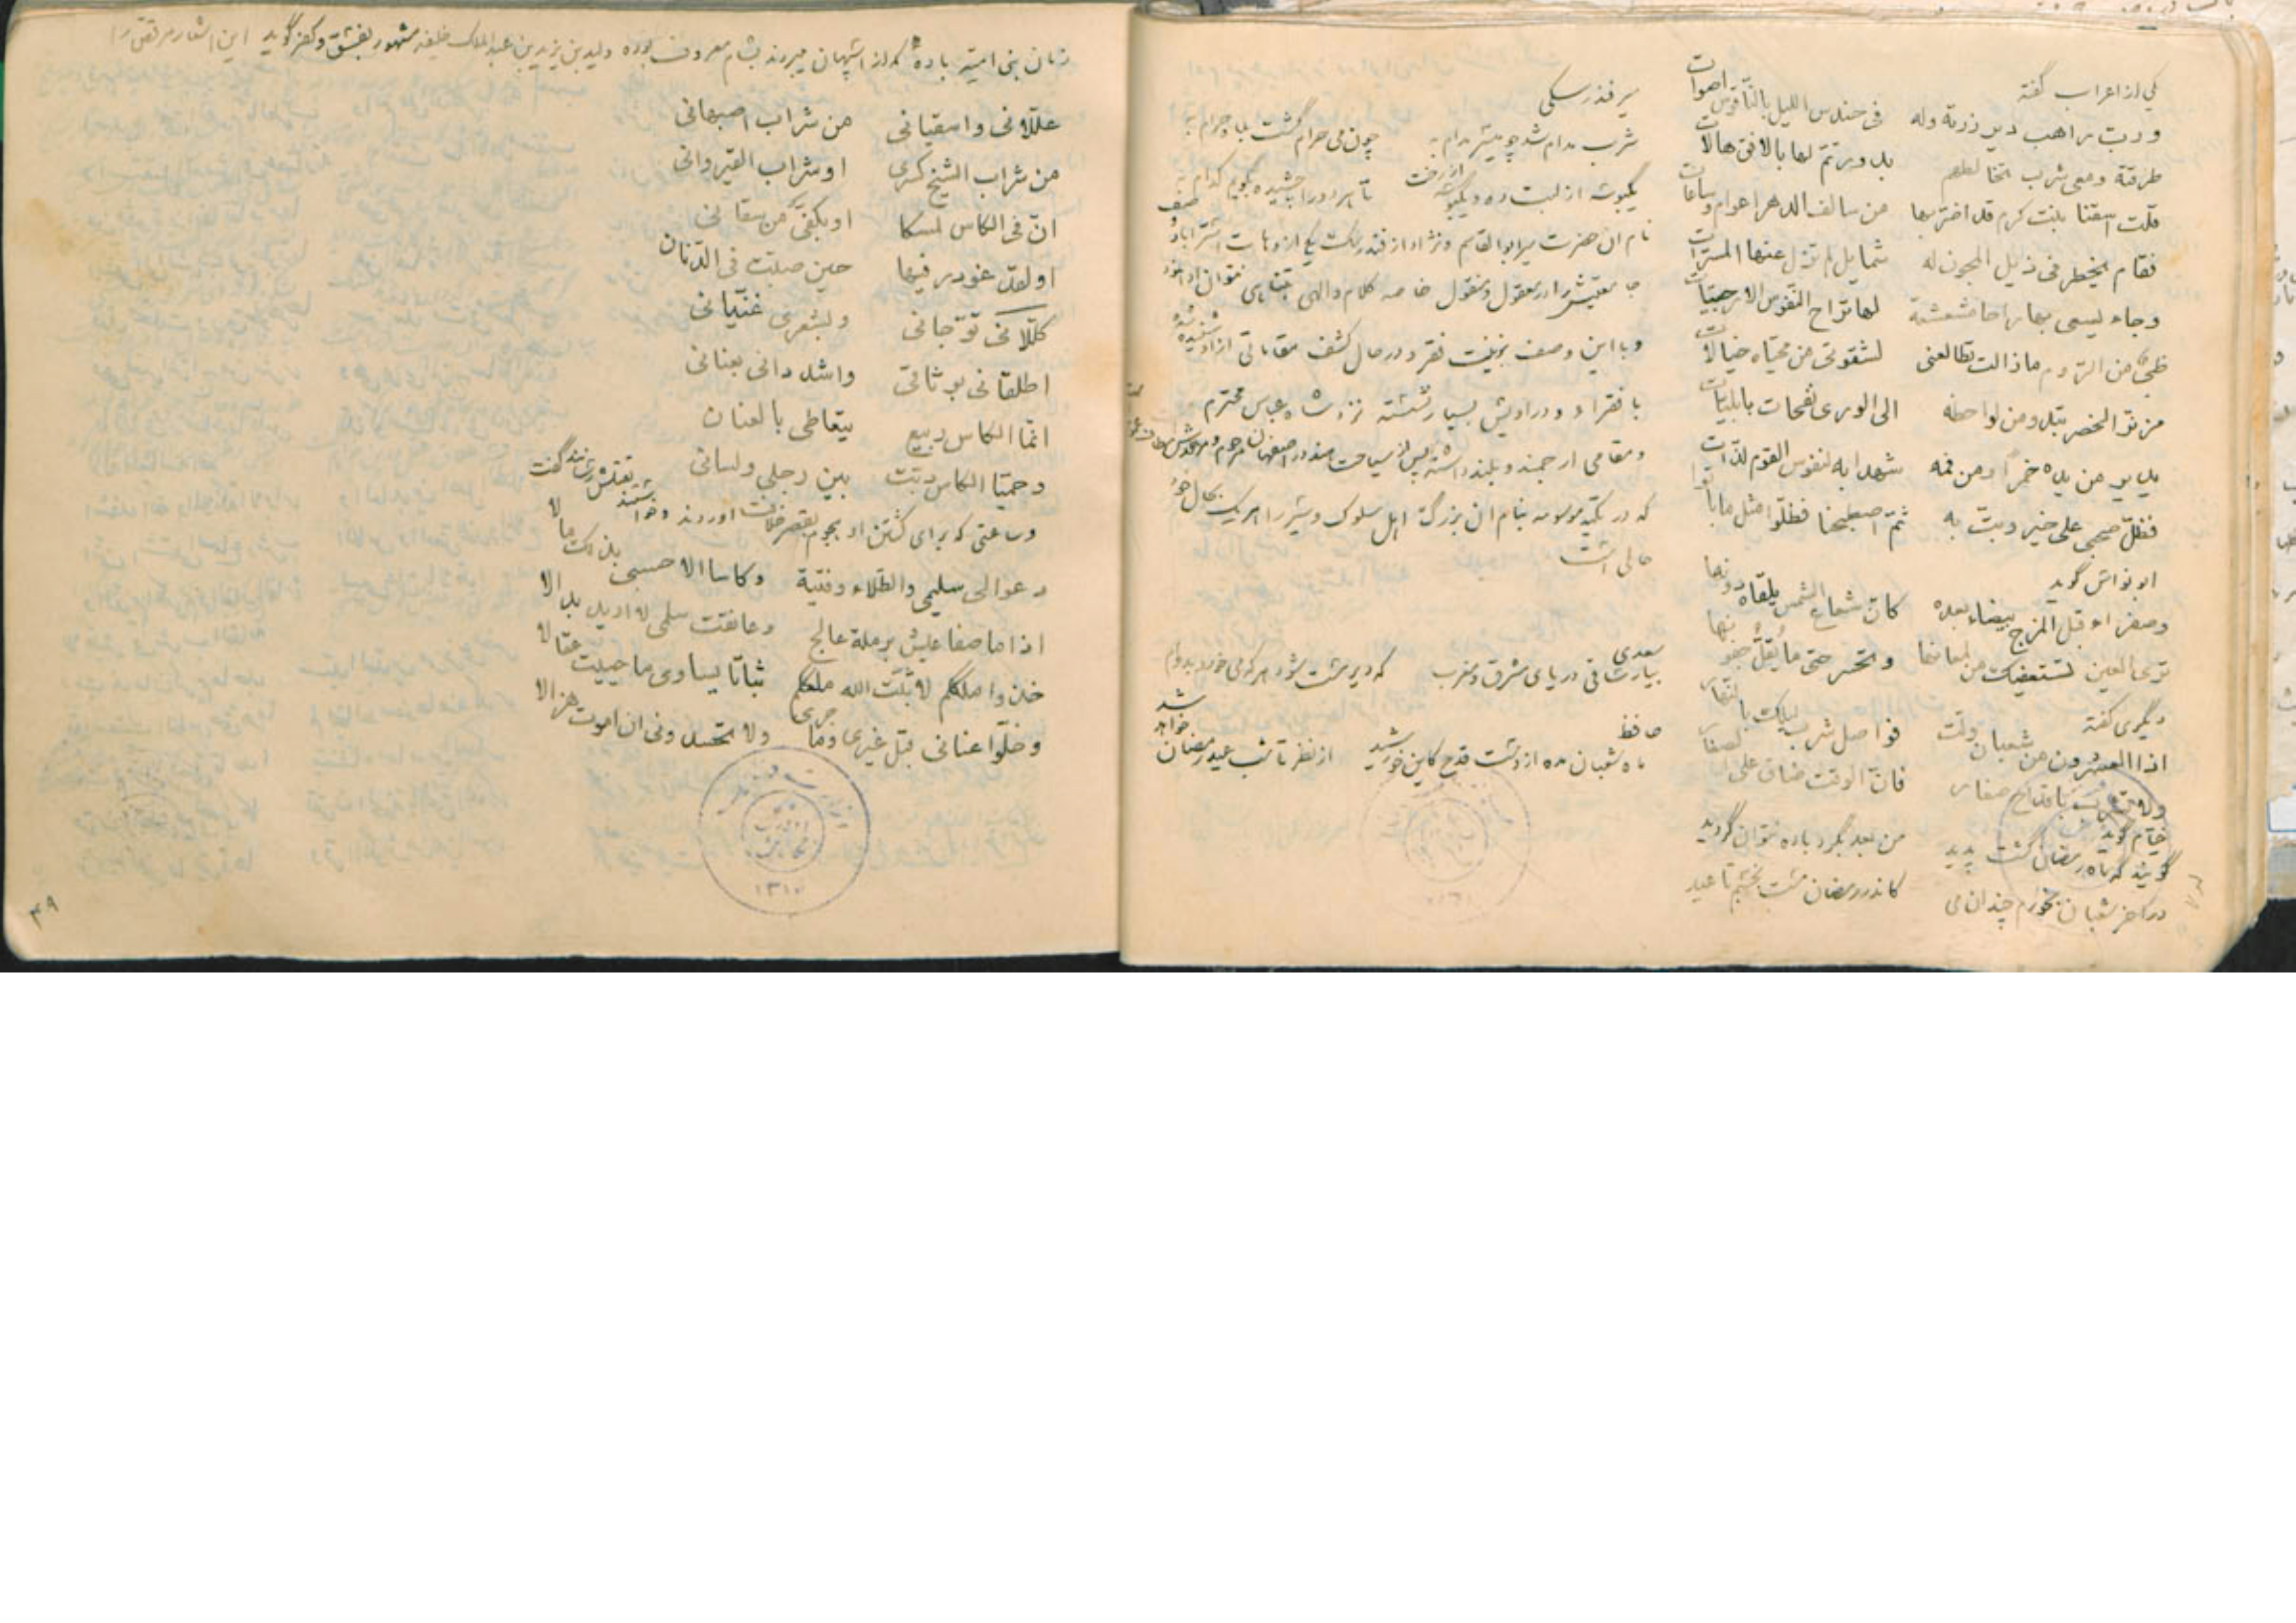 یکی از اعراب گفته
ورب راهب دیر زرته وله فی حندس اللیل بالناقوس اصوات
طرقته ومعی شرب لهم بدور تم لها بالافق هالات
قلت اسقنا بنت کرم قد اضر بها من سالف الدهر اعوام وساعات
فقام یخطر فی ذیل المجون له شمایل لم تزل عنها المسرات
وجاء یسعی بها راحا مشعشعة لها تراح النفوس الارحبیات
ظبی من الروم مازالت تطالعنی لشقوتی من محیاه خیالات
من نوّ الخصر تبدو من لواحظه الی الوری نفحات بابلیات
یدیر من یده خمرا ومن فمه شهدا به لنفوس القوم لذات
فظل صحبی علی خیر وبت به ثم اصطبحنا فظلوا مثل ماباتوا
ابونواس گوید
وصفراء قبل المزج بیضاء بعده کان شعاع الشمس یلقاك دونها
تری العین تستعفیك من لمعانها وتحسر حتی ما یقل جفونها
دیگری گفته
اذا العشرون من شعبان ولت فواصل شرب لیلك بالنهار
ولا تشرب باقداح صغار فان الوقت ضاق علی الصغار
خیام گوید
گویند که ماه رمضان گشت پدید من بعد بگرد باده نتوان گردید
در آخر شعبان بخورم چندان می کاندر رمضان مست بخسبم تا عید
میر فندرسکی
شرب مدام شد چو میسر مدام به چون می حرام گشت بماه حرام به
یکبوسه از لبت ده و یکبوسه از رخت تا هر دو را چشیده بگویم کدام به
نام ان حضرت میر ابوالقاسم و نژاد از فندرسك یکی از دهات استراباد وصف
جامعیتش در معقول و منقول خاصه کلام والهی نتوان نمود
و با این وصف بزینت فقر و در حال کشف مقاماتی ازاو شنیده شده
با فقراء و دراویش بسیار نشسته نزد شاه عباس محترم
و مقامی ارجمند و بلند داشته پس از سیاحت هند در اصفهان مرحوم و مرقدش
که در تکیه موسومه بنام ان بزرگ اهل سلوك و شیر را هر یك بحال خود
حالی است
سعدی
بیار ساقی دریای مشرق و مغرب که دیر مست شود هر که می خورد بدوام
حافظ
ماه شعبان مده از دست قدح کاین خورشید از نظر تا شب عید رمضان خواهد شد
زمان بنی امیه بادهٔ که از اسپهان میبردند بشام معروف بوده ولید بن یزید بن عبدالملك خلیفه مشهور بفسق و کفر گوید این اشعار مرقص را
عللانی واسقیانی من شراب اصبهانی
من شراب الشیخ کسری او شراب القیروانی
ان فی الکاس لمسکا او بکفی من سقانی
او لقد غودر فیها حین صبت فی الدنان
کللانی توجانی وبشعری غنیانی
اطلقانی بوثاقی واشددانی بعنانی
انما الکاس ربیع یتعاطی بالبنان
وحمیا الکاس دبت بین رجلی ولسانی
وساعتی که برای کشتن او هجوم بقصر خلافت اوردند و خواستند بقتلش رسانند گفت
دعوا لی سلیمی والطلاء وفتیة وکاسا الا حسبی بذلك مالا
اذا ما صفا عیش برملة عالج وعانقت سلمی لا ارید بدالا
خذوا ملککم لا ثبت الله ملککم ثباتا یساوی ما حییت عقالا
وخلوا عنانی قبل غیری وما جری ولا تحسدونی ان اموت هزالا
۱۳۱۰
۴۹